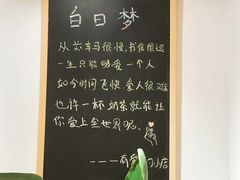 白日梦
从前车马很慢,书信很远
一生只能够爱一个人
如今时间飞快,爱人很难
也许一杯奶茶就能让
你爱上全世界呢
小店